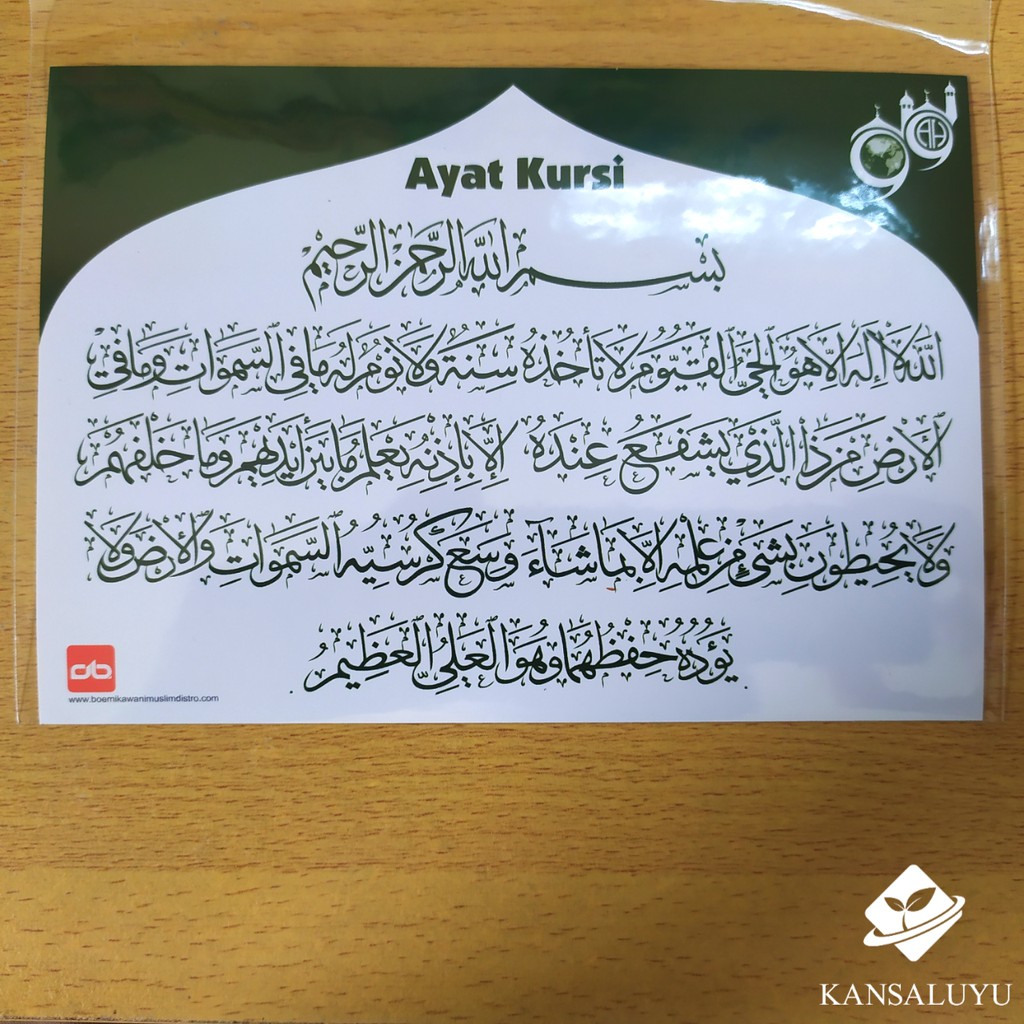 Ayat Kursi
بِسْمِ اللّٰهِ الرَّحْمٰنِ الرَّحِيْمِ
اَللّٰهُ لَا اِلٰهَ اِلَّا هُوَ الْحَيُّ الْقَيُّوْمُ لَا تَأْخُذُهُ سِنَةٌ وَلَا نَوْمٌ لَهُ مَا فِي السَّمٰوَاتِ وَمَا فِي
الْاَرْضِ مَنْ ذَا الَّذِيْ يَشْفَعُ عِنْدَهُ اِلَّا بِاِذْنِهِ يَعْلَمُ مَا بَيْنَ اَيْدِيْهِمْ وَمَا خَلْفَهُمْ
وَلَا يُحِيْطُوْنَ بِشَيْءٍ مِنْ عِلْمِهِ اِلَّا بِمَا شَاءَ وَسِعَ كُرْسِيُّهُ السَّمٰوَاتِ وَالْاَرْضَ وَلَا
يَؤُدُهُ حِفْظُهُمَا وَهُوَ الْعَلِيُّ الْعَظِيْمُ
www.boemikawanimuslimdistro.com
KANSALUYU